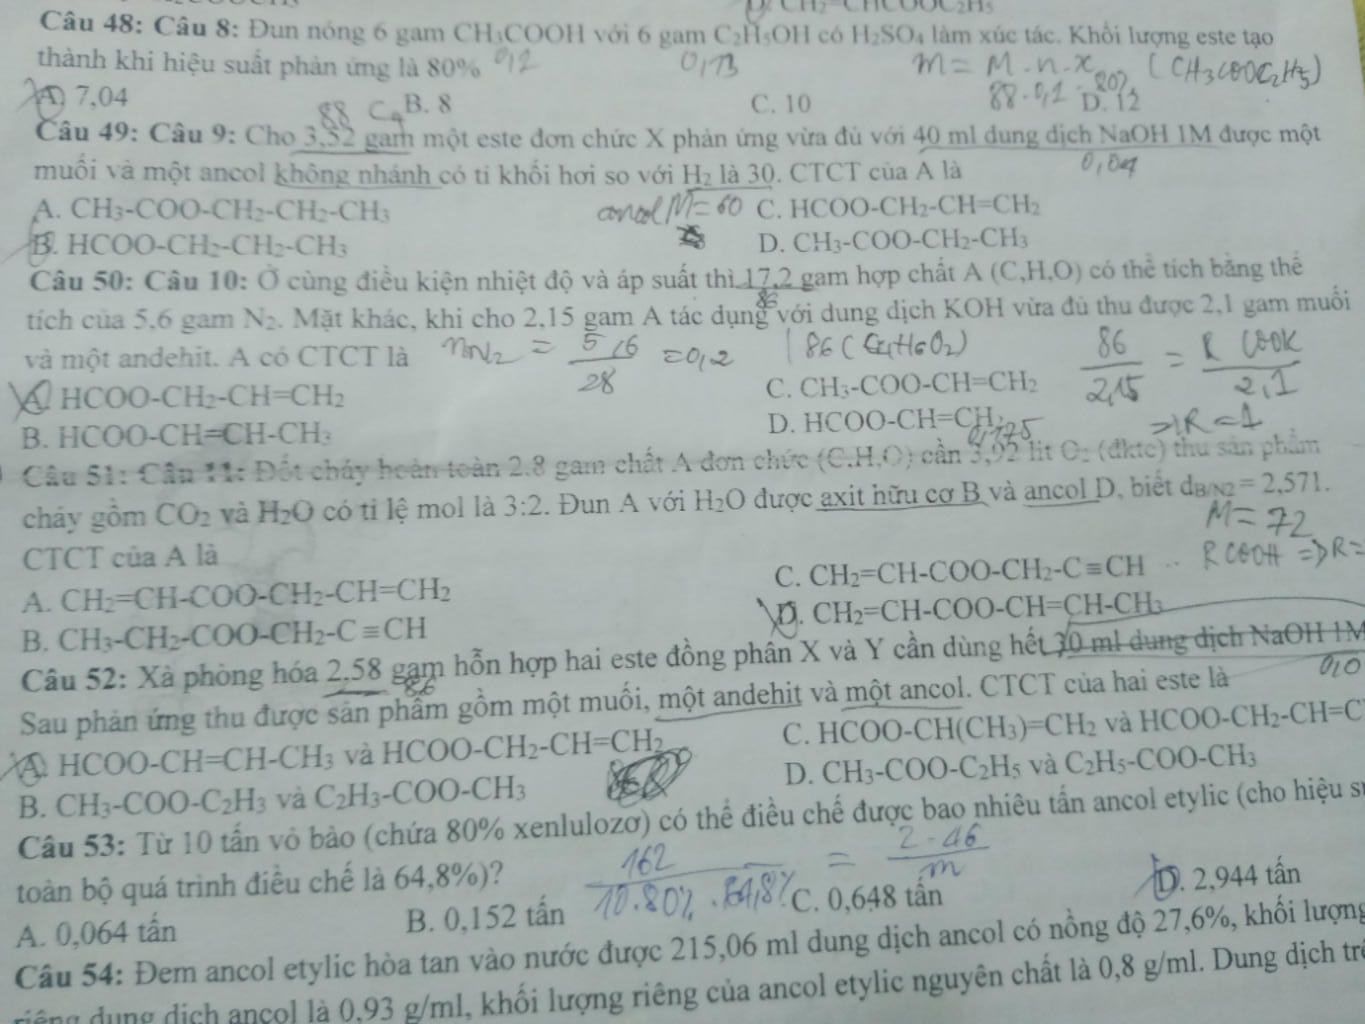 D. CH₂=CHCOOC₂H₅
Câu 48: Câu 8: Đun nóng 6 gam CH₃COOH với 6 gam C₂H₅OH có H₂SO₄ làm xúc tác. Khối lượng este tạo
thành khi hiệu suất phản ứng là 80% 0,2 0,13 m = M.n.x (CH₃COOC₂H₅)
88.0,1.80%
A. 7,04 B. 8 C. 10 D. 12
88 C₄
Câu 49: Câu 9: Cho 3,52 gam một este đơn chức X phản ứng vừa đủ với 40 ml dung dịch NaOH 1M được một
0,04
muối và một ancol không nhánh có tỉ khối hơi so với H₂ là 30. CTCT của A là
A. CH₃-COO-CH₂-CH₂-CH₃ ancol M=60 C. HCOO-CH₂-CH=CH₂
B. HCOO-CH₂-CH₂-CH₃ D. CH₃-COO-CH₂-CH₃
Câu 50: Câu 10: Ở cùng điều kiện nhiệt độ và áp suất thì 17,2 gam hợp chất A (C,H,O) có thể tích bằng thể
86
tích của 5,6 gam N₂. Mặt khác, khi cho 2,15 gam A tác dụng với dung dịch KOH vừa đủ thu được 2,1 gam muối
và một andehit. A có CTCT là nN₂ = 5,6/28 = 0,2 86 (C₄H₆O₂) 86/2,15 = RCOOK/2,1
A. HCOO-CH₂-CH=CH₂ C. CH₃-COO-CH=CH₂
B. HCOO-CH=CH-CH₃ D. HCOO-CH=CH₂ => R = 1
0,175
Câu 51: Câu 11: Đốt cháy hoàn toàn 2.8 gam chất A đơn chức (C,H,O) cần 3,92 lit O₂ (đktc) thu sản phẩm
cháy gồm CO₂ và H₂O có tỉ lệ mol là 3:2. Đun A với H₂O được axit hữu cơ B và ancol D, biết d_B/N2 = 2,571.
M = 72
CTCT của A là RCOOH => R =
A. CH₂=CH-COO-CH₂-CH=CH₂ C. CH₂=CH-COO-CH₂-C≡CH
B. CH₃-CH₂-COO-CH₂-C≡CH D. CH₂=CH-COO-CH=CH-CH₃
Câu 52: Xà phòng hóa 2,58 gam hỗn hợp hai este đồng phân X và Y cần dùng hết 30 ml dung dịch NaOH 1M
86 0,0
Sau phản ứng thu được sản phẩm gồm một muối, một andehit và một ancol. CTCT của hai este là
A. HCOO-CH=CH-CH₃ và HCOO-CH₂-CH=CH₂ C. HCOO-CH(CH₃)=CH₂ và HCOO-CH₂-CH=C
B. CH₃-COO-C₂H₃ và C₂H₃-COO-CH₃ D. CH₃-COO-C₂H₅ và C₂H₅-COO-CH₃
Câu 53: Từ 10 tấn vỏ bào (chứa 80% xenlulozơ) có thể điều chế được bao nhiêu tấn ancol etylic (cho hiệu
toàn bộ quá trình điều chế là 64,8%)? 162/10.80%.64,8% = 2.46/m
A. 0,064 tấn B. 0,152 tấn C. 0,648 tấn D. 2,944 tấn
Câu 54: Đem ancol etylic hòa tan vào nước được 215,06 ml dung dịch ancol có nồng độ 27,6%, khối lượng
riêng dung dịch ancol là 0,93 g/ml, khối lượng riêng của ancol etylic nguyên chất là 0,8 g/ml. Dung dịch